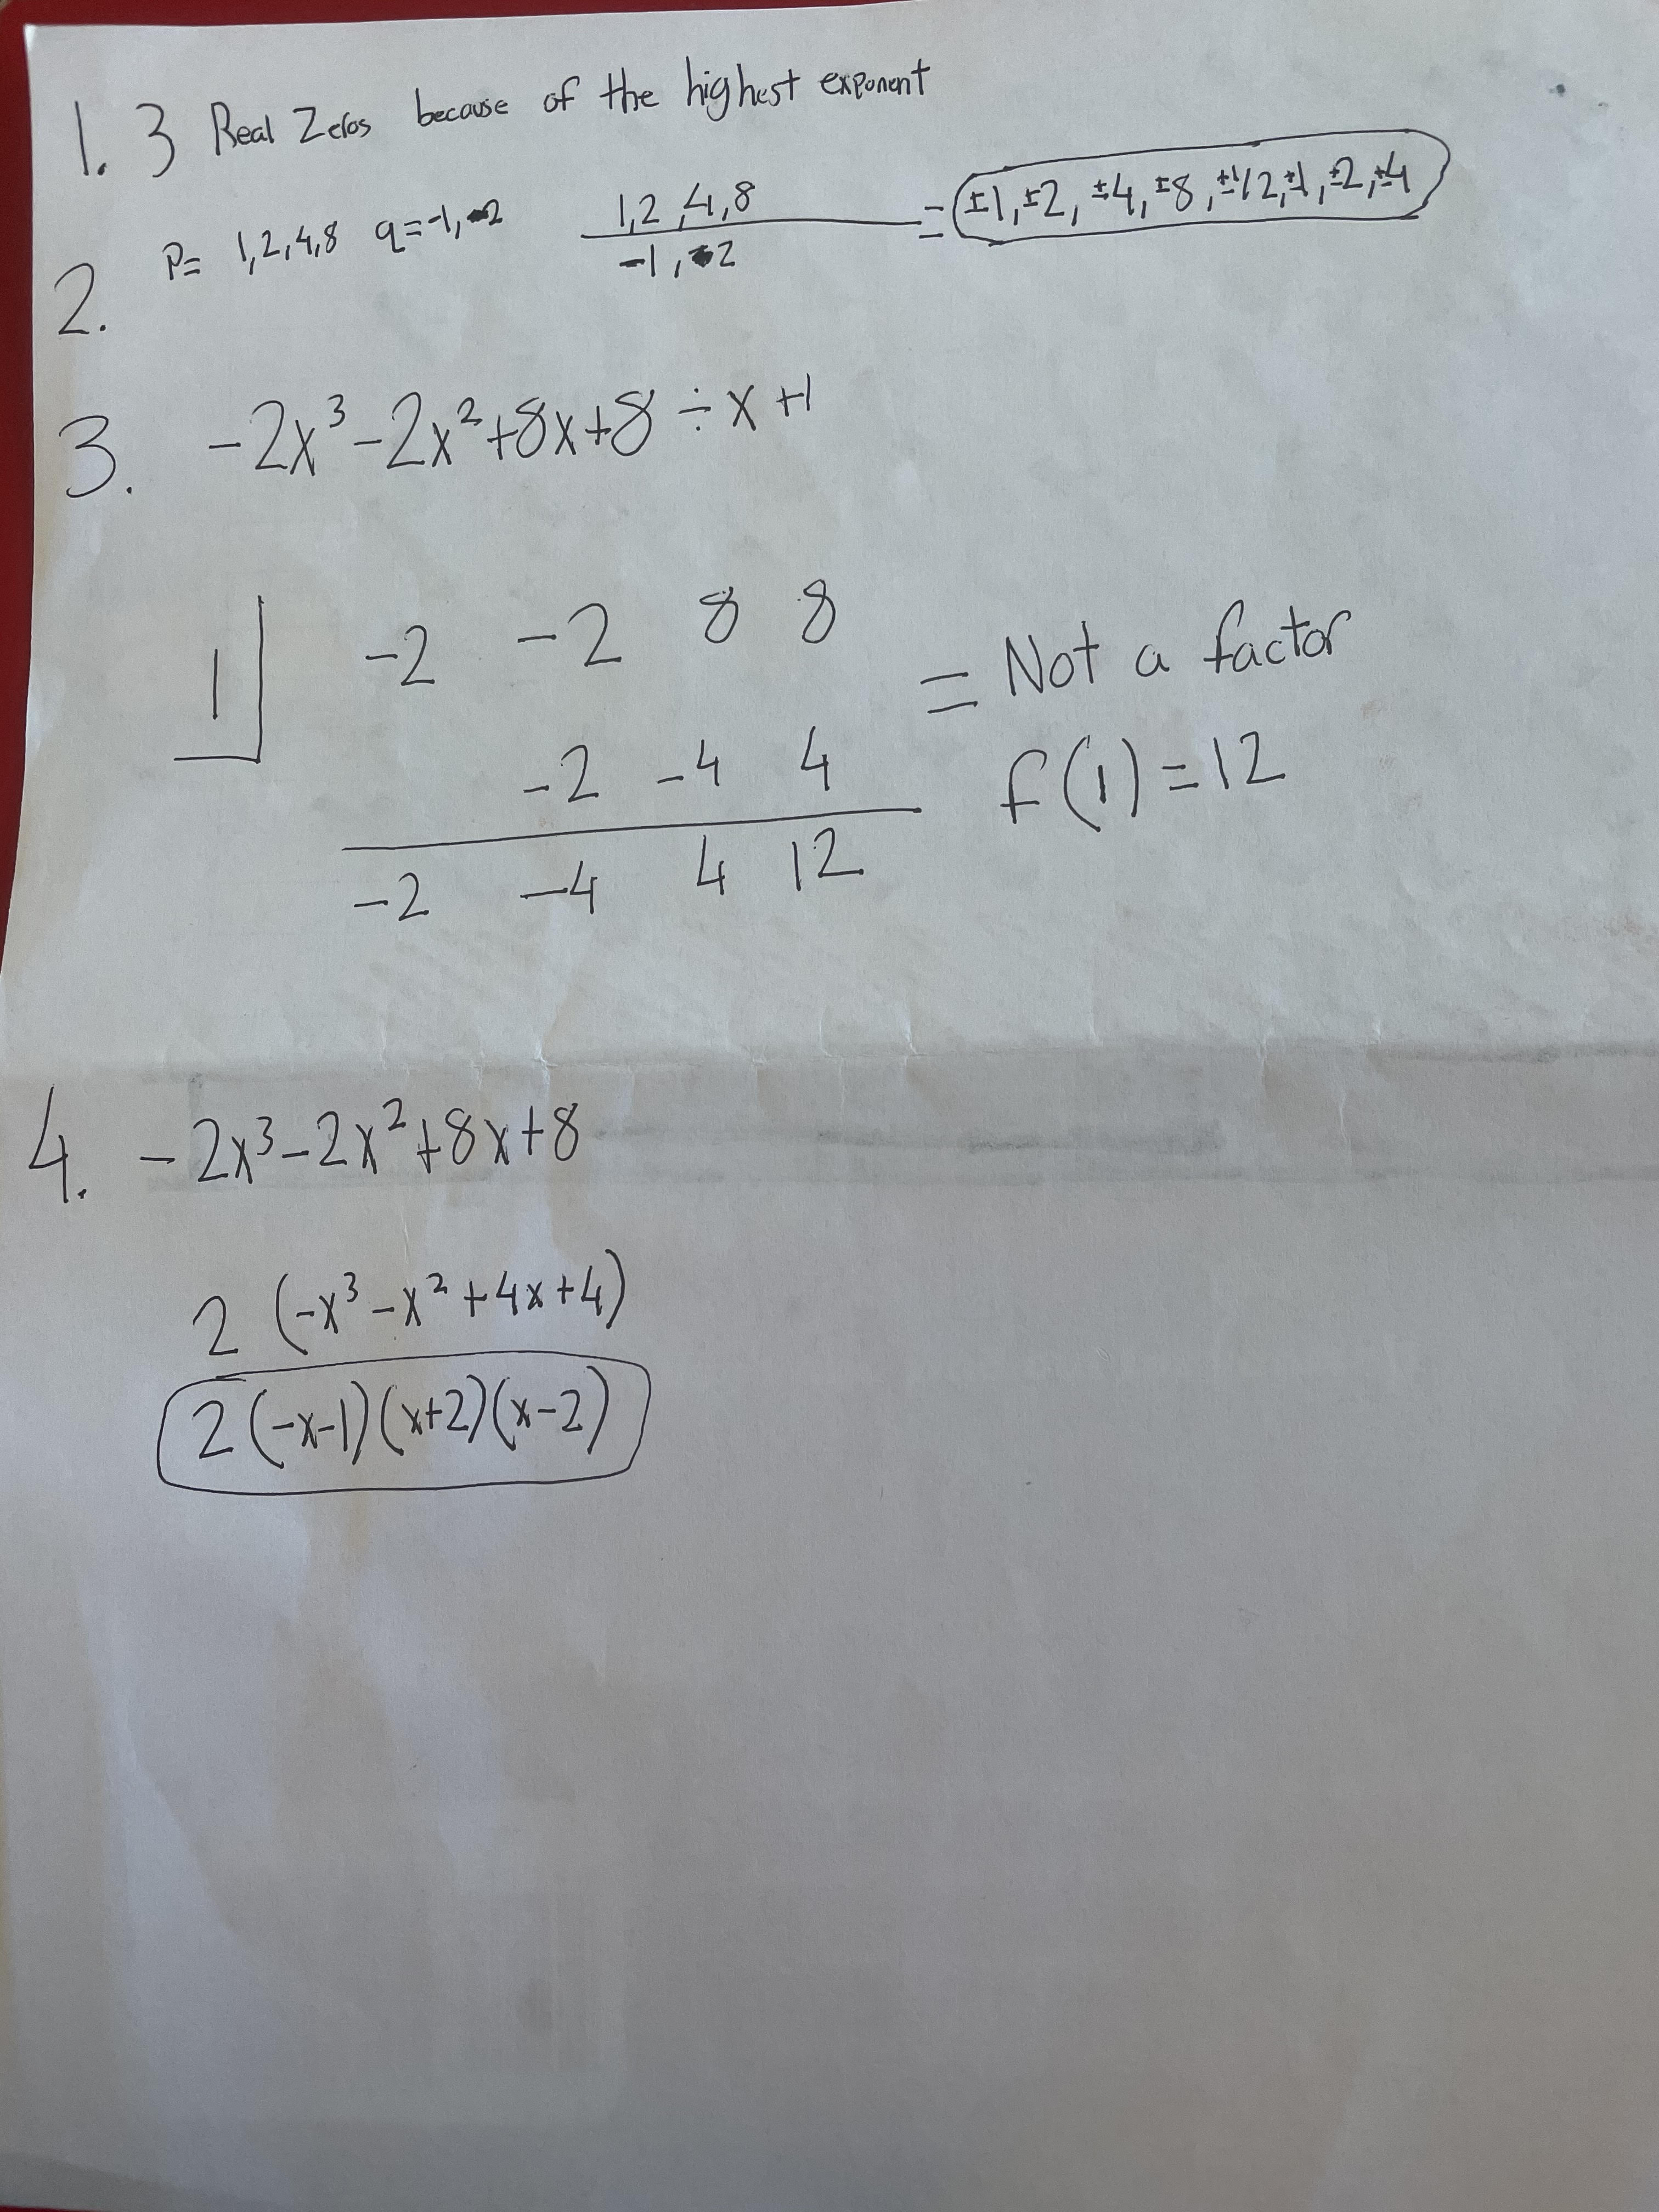 1. 3 Real Zeros because of the highest exponent
2. P= 1,2,4,8 q=-1,-2 1,2,4,8 = ±1,±2,±4,±8,±1/2,±1,±2,±4
-1, 2
3. -2x³-2x²+8x+8 ÷ x+1
1 -2 -2 8 8 = Not a factor
-2 -4 4 f(1)=12
-2 -4 4 12
4. -2x³-2x²+8x+8
2 (-x³-x²+4x+4)
2(-x-1)(x+2)(x-2)